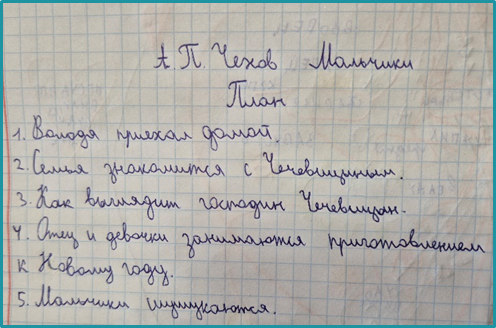 А. П. Чехов Мальчики
План
1. Володя приехал домой.
2. Семья знакомится с Чечевицыным.
3. Как выглядит господин Чечевицын.
4. Отец и девочки занимаются приготовлением
к Новому году.
5. Мальчики шушукаются.